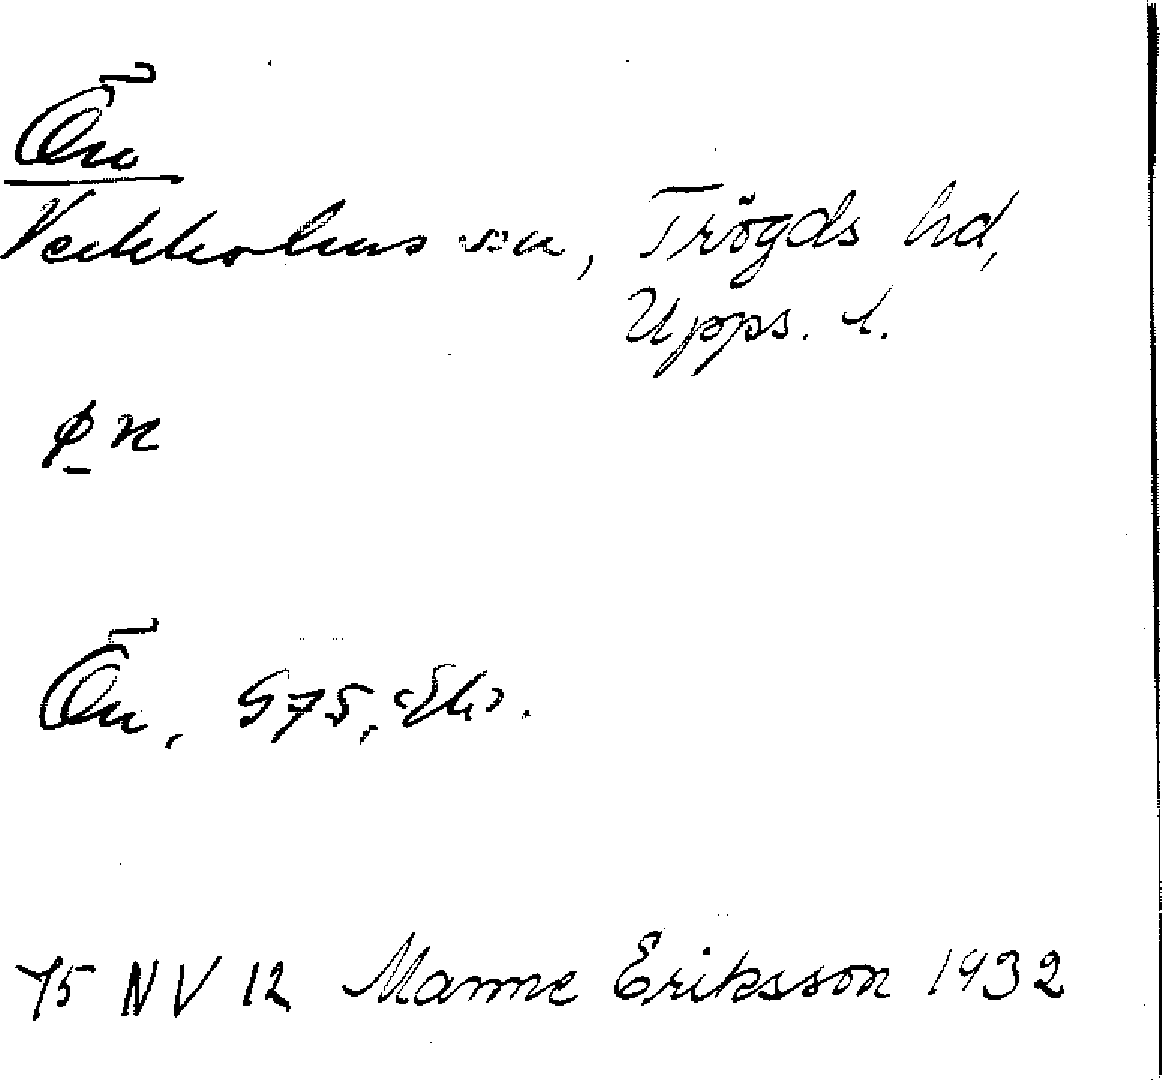 Ön
Veckholms sn, Trögds hd,
Upps. l.
ø̱ n
Ön, 975, Ek.
75 NV 12 Manne Eriksson 1932